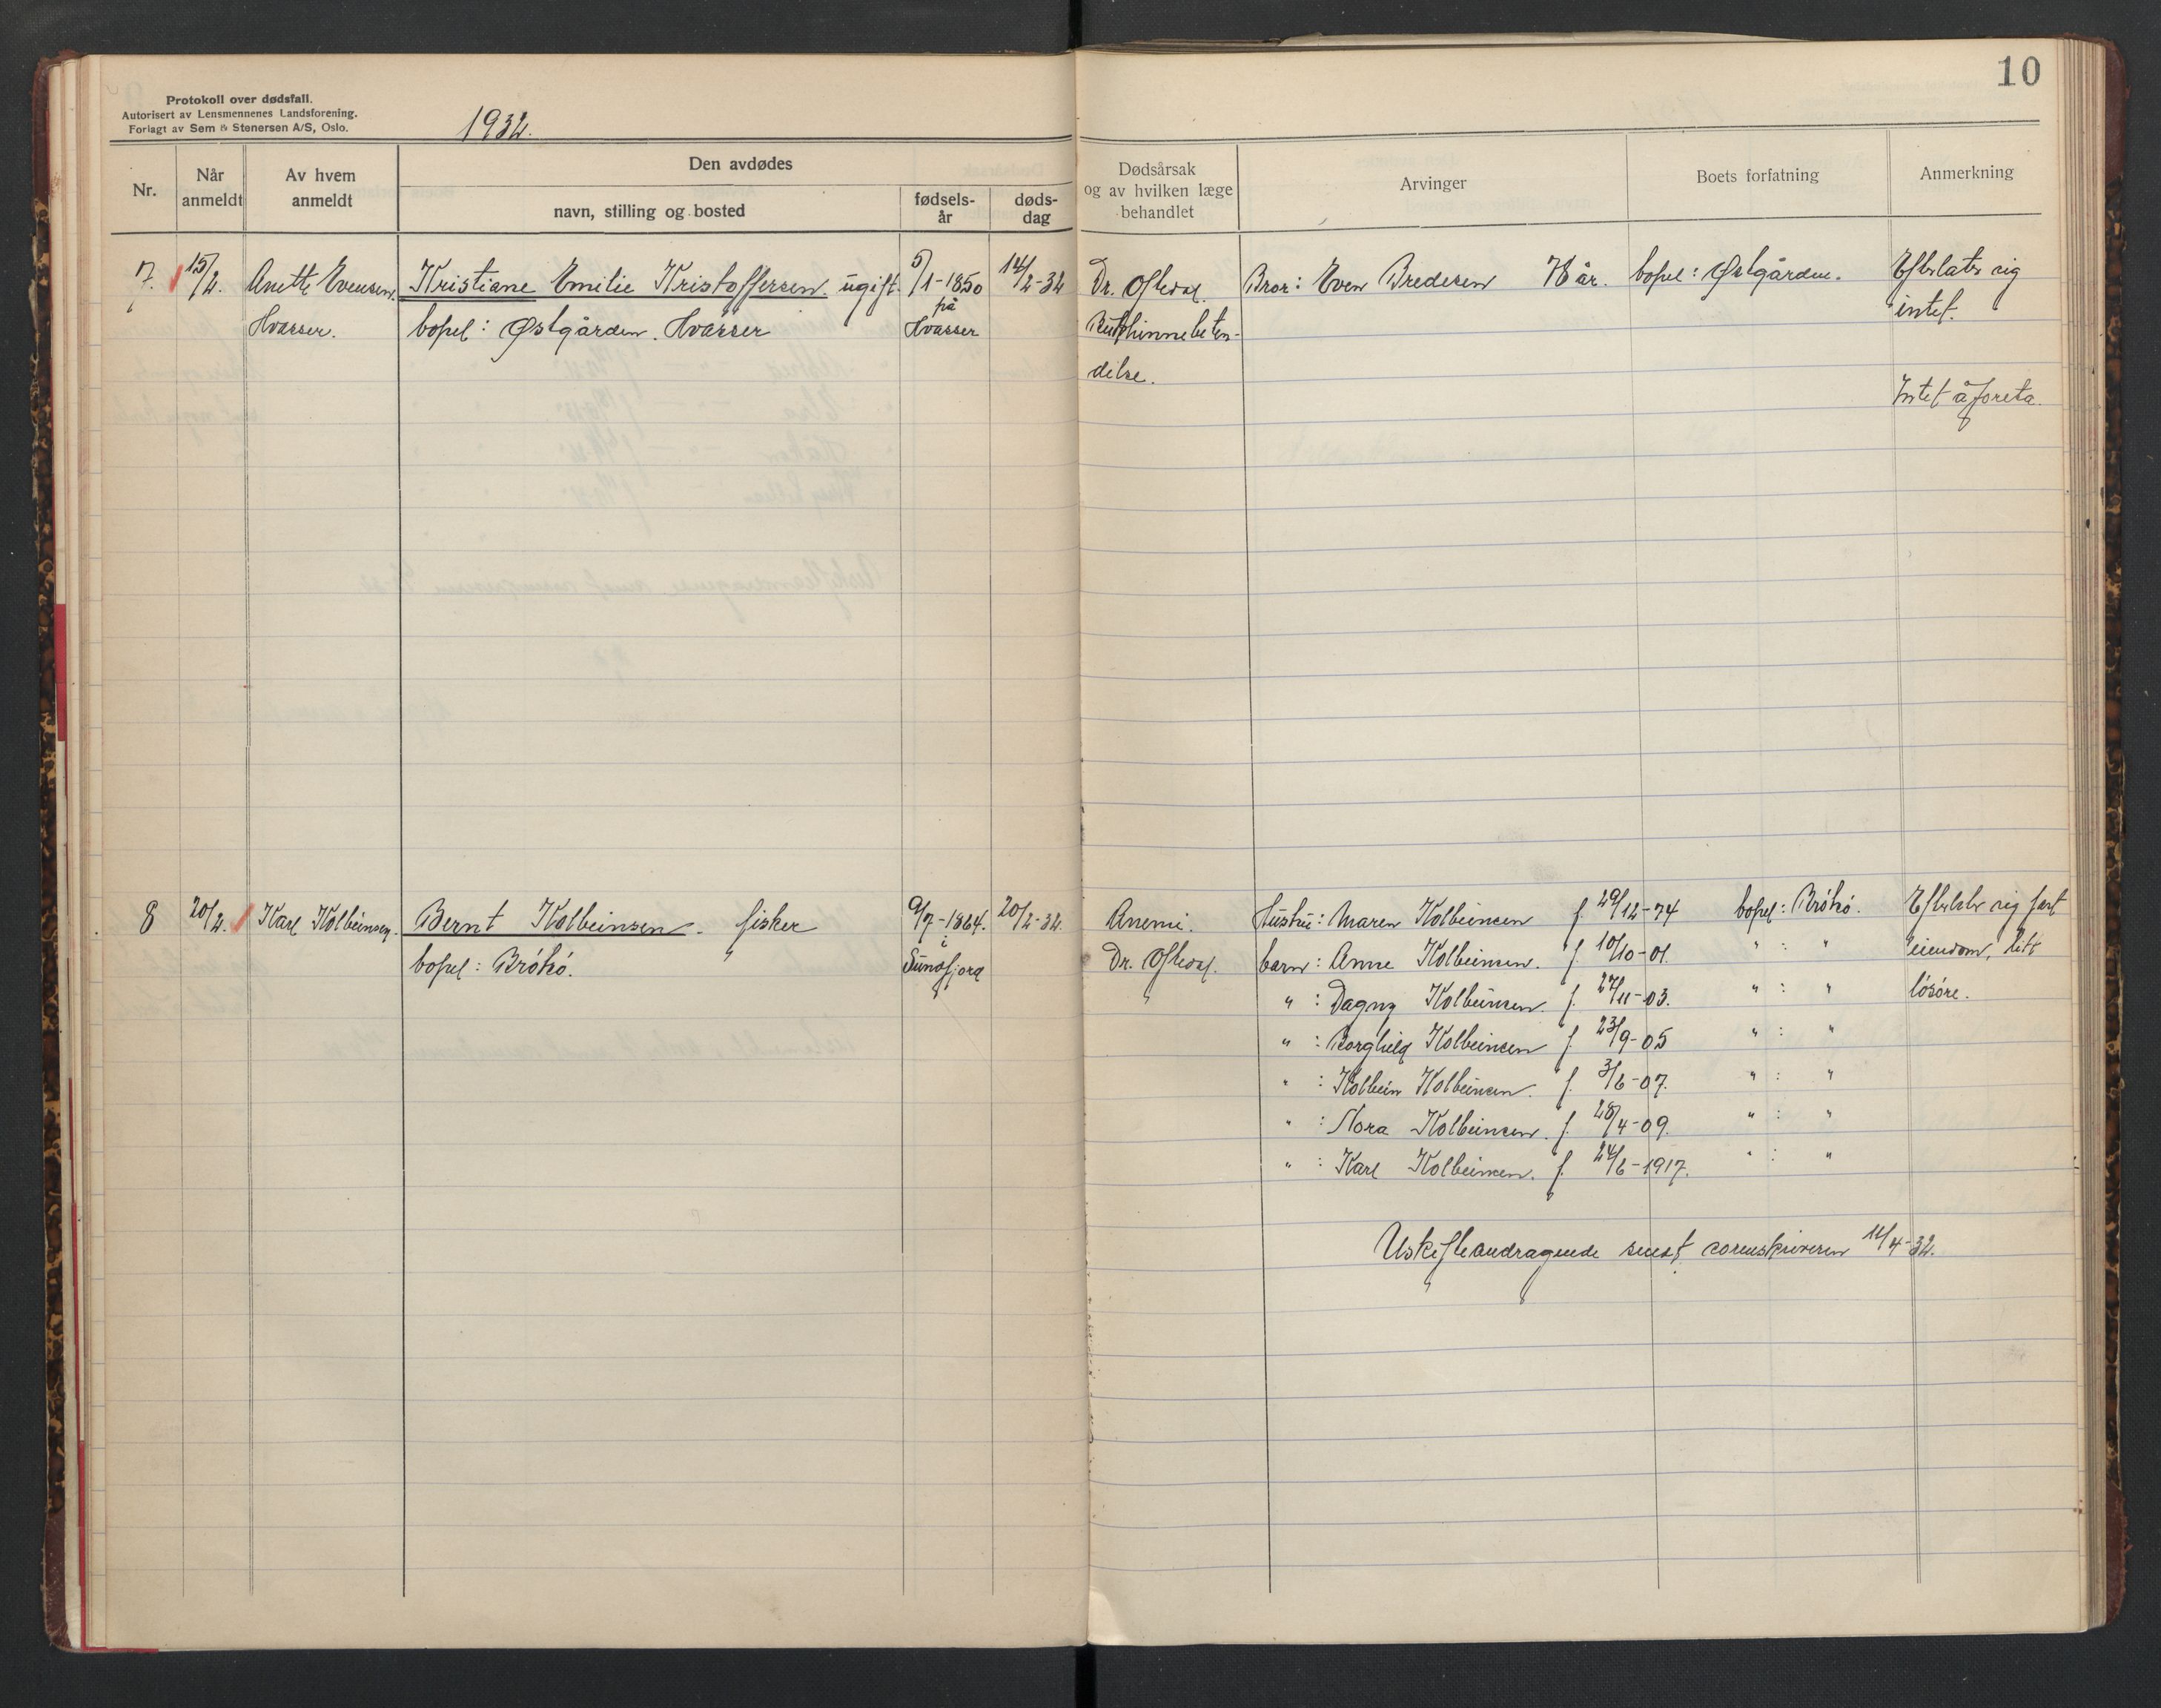 10
Protokoll over dødsfall.
Autorisert av Lensmennenes Landsforening.
Forlagt av Sem & Stenersen A/S, Oslo.
1932.
Nr.
Når anmeldt
Av hvem anmeldt
Den avdødes
navn, stilling og bosted
fødsels-år
døds-dag
Dødsårsak og av hvilken læge behandlet
Arvinger
Boets forfatning
Anmerkning
7. 15/2. Anette Evensen. Kristiane Emilie Kristoffersen. ugift. 5/1-1850 14/2-32 Dr. Oftedal. Bror: Even Bredesen 78 år. bopel: Østgården. Efterlater sig
Hvasser. bopel: Østgården. Hvasser på Hvasser Bukhinnebeten- intet.
delse.
Intet å foreta.
8 20/2. Karl Kolbeinsen. Bernt Kolbeinsen. fisker 9/7-1864. 20/2-32. Anemi. Hustru: Maren Kolbeinsen f. 29/12-74 bopel: Brøtsø. Efterlater sig fast
bopel: Brøtsø. i Sunnfjord Dr. Oftedal. barn: Anne Kolbeinsen. f. 10/10-01. " : " eiendom, litt
" : Dagny Kolbeinsen. f. 27/11-03. " : " løsøre.
" : Borghild Kolbeinsen f. 23/9-05 " : "
" : Kolbein Kolbeinsen. f. 3/6-07. " : "
" : Nora Kolbeinsen. f. 28/4-09. " : "
" : Karl Kolbeinsen. f. 24/6-1917. " : "
Uskifteandragende sendt sorenskriveren 11/4-32.